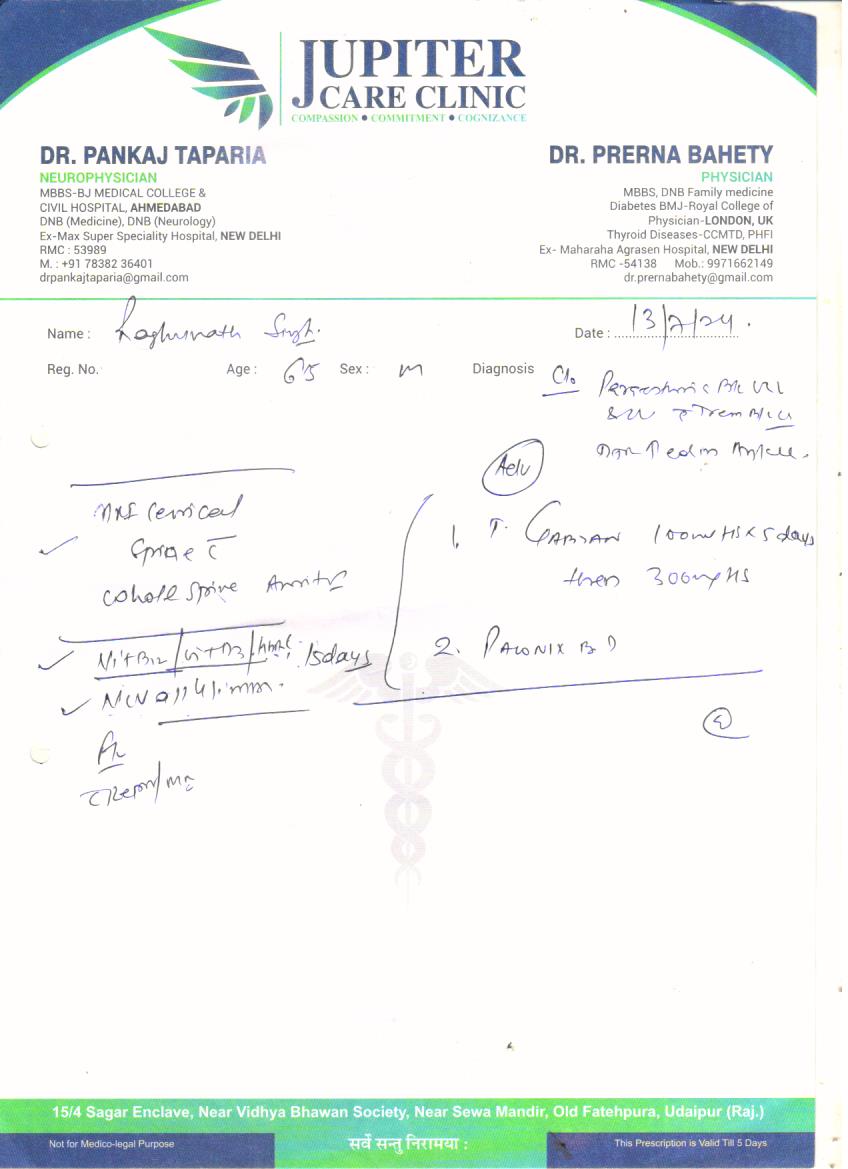 JUPITER
CARE CLINIC
COMPASSION ● COMMITMENT ● COGNIZANCE
DR. PANKAJ TAPARIA
NEUROPHYSICIAN
MBBS-BJ MEDICAL COLLEGE &
CIVIL HOSPITAL, AHMEDABAD
DNB (Medicine), DNB (Neurology)
Ex-Max Super Speciality Hospital, NEW DELHI
RMC : 53989
M. : +91 78382 36401
drpankajtaparia@gmail.com
DR. PRERNA BAHETY
PHYSICIAN
MBBS, DNB Family medicine
Diabetes BMJ-Royal College of
Physician-LONDON, UK
Thyroid Diseases-CCMTD, PHFI
Ex- Maharaha Agrasen Hospital, NEW DELHI
RMC -54138 Mob.: 9971662149
dr.prernabahety@gmail.com
Name : Raghunath Singh.
Date : 13/7/24.
Reg. No. Age : 65 Sex : M Diagnosis C/o
Adv
MRI Cervical
Spine
whole spine
Vit B12/Vit D3/ 15days
1. T. 100mg HS x 5 days
then 300mg HS
2. BD
15/4 Sagar Enclave, Near Vidhya Bhawan Society, Near Sewa Mandir, Old Fatehpura, Udaipur (Raj.)
Not for Medico-legal Purpose
सर्वे सन्तु निरामया :
This Prescription is Valid Till 5 Days